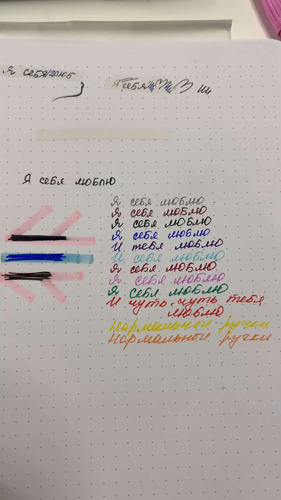 Я себя люб
Я себя люблю
Я себя люблю
Я себя люблю
Я себя люблю
Я себя люблю
И тебя люблю
Я себя люблю
Я себя люблю
Я себя люблю
Я себя люблю
И чуть-чуть тебя
люблю
Нормальной ручки
Нормальной ручки